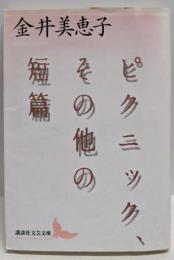 金井美恵子
ピクニック、
その他の
短篇
講談社文芸文庫